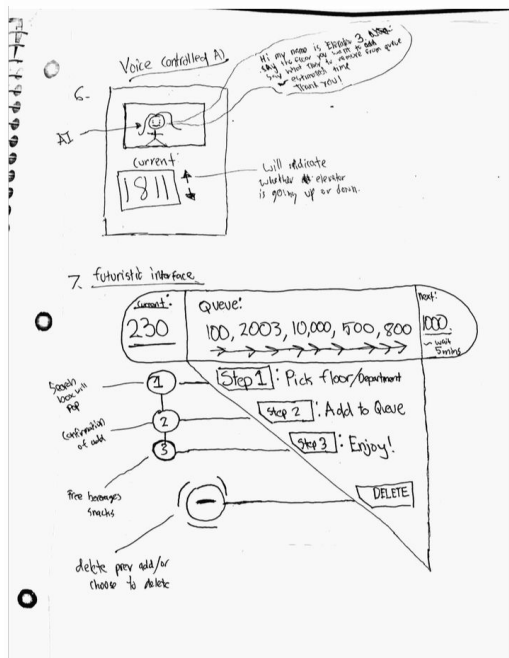 Voice controlled AI
Hi my name is Elevator 3.
Say the floor you want to add
Say what floor to remove from queue
estimated time
Thank you!
6.
AI
Current:
1811
will indicate
whether elevator
is going up or down.
7. futuristic interface
Current:
230
Queue:
100, 2003, 10,000, 500, 800
Next:
1000
~ wait
5mins
1
Step 1: Pick floor/Department
Search
box will
pop
2
Step 2: Add to Queue
Confirmation
of add
3
Step 3: Enjoy!
Free beverages
snacks
DELETE
delete prev add/or
choose to delete